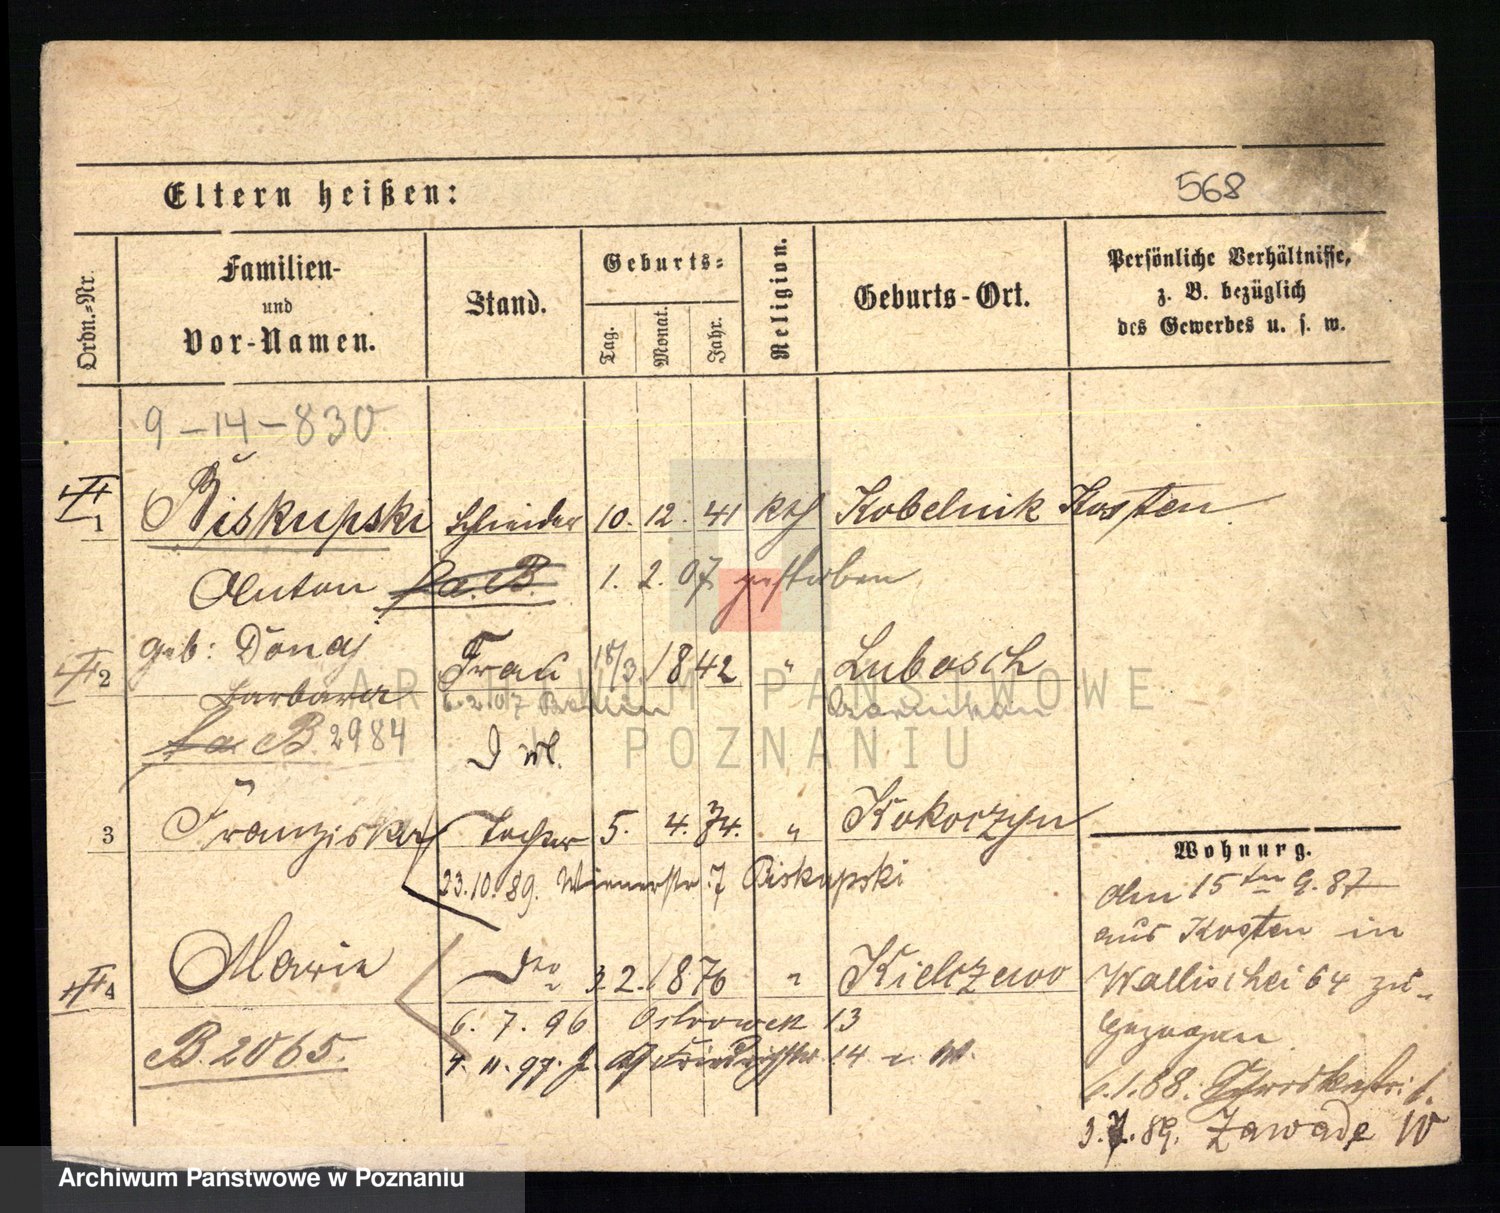 Eltern heißen:
568
Ordn.-Nr.
Familien-
und
Vor-Namen.
Stand.
Geburts-
Tag.
Monat.
Jahr.
Religion.
Geburts-Ort.
Persönliche Verhältnisse,
z. B. bezüglich
des Gewerbes u. s. w.
9-14-830
1 Biskupski Schneider 10. 12. 41 kth Kobelnik Kosten
Anton fa. B. 1. 2. 07 gestorben
geb: Donaj
2 Barbara Frau 18/3. 1842 " Lubosch
6. 2. 07 Berlin
fa B. 2984
3 Franziska Tochter 5. 4. 74. " Kokorzyn
23.10.89. Wienerstr. 7 Biskupski
4 Marie 3 2. 1876 " Kielczewo
6. 7. 96 Ostrowek 13
B. 2065. 4. 11. 97. 14
Wohnung.
Am 15ten 9. 87
aus Kosten in
Wallischei 64 zu-
gezogen
6.1.88.
3.7.89. Zawade 10
ARCHIWUM PAŃSTWOWE
W POZNANIU
Archiwum Państwowe w Poznaniu